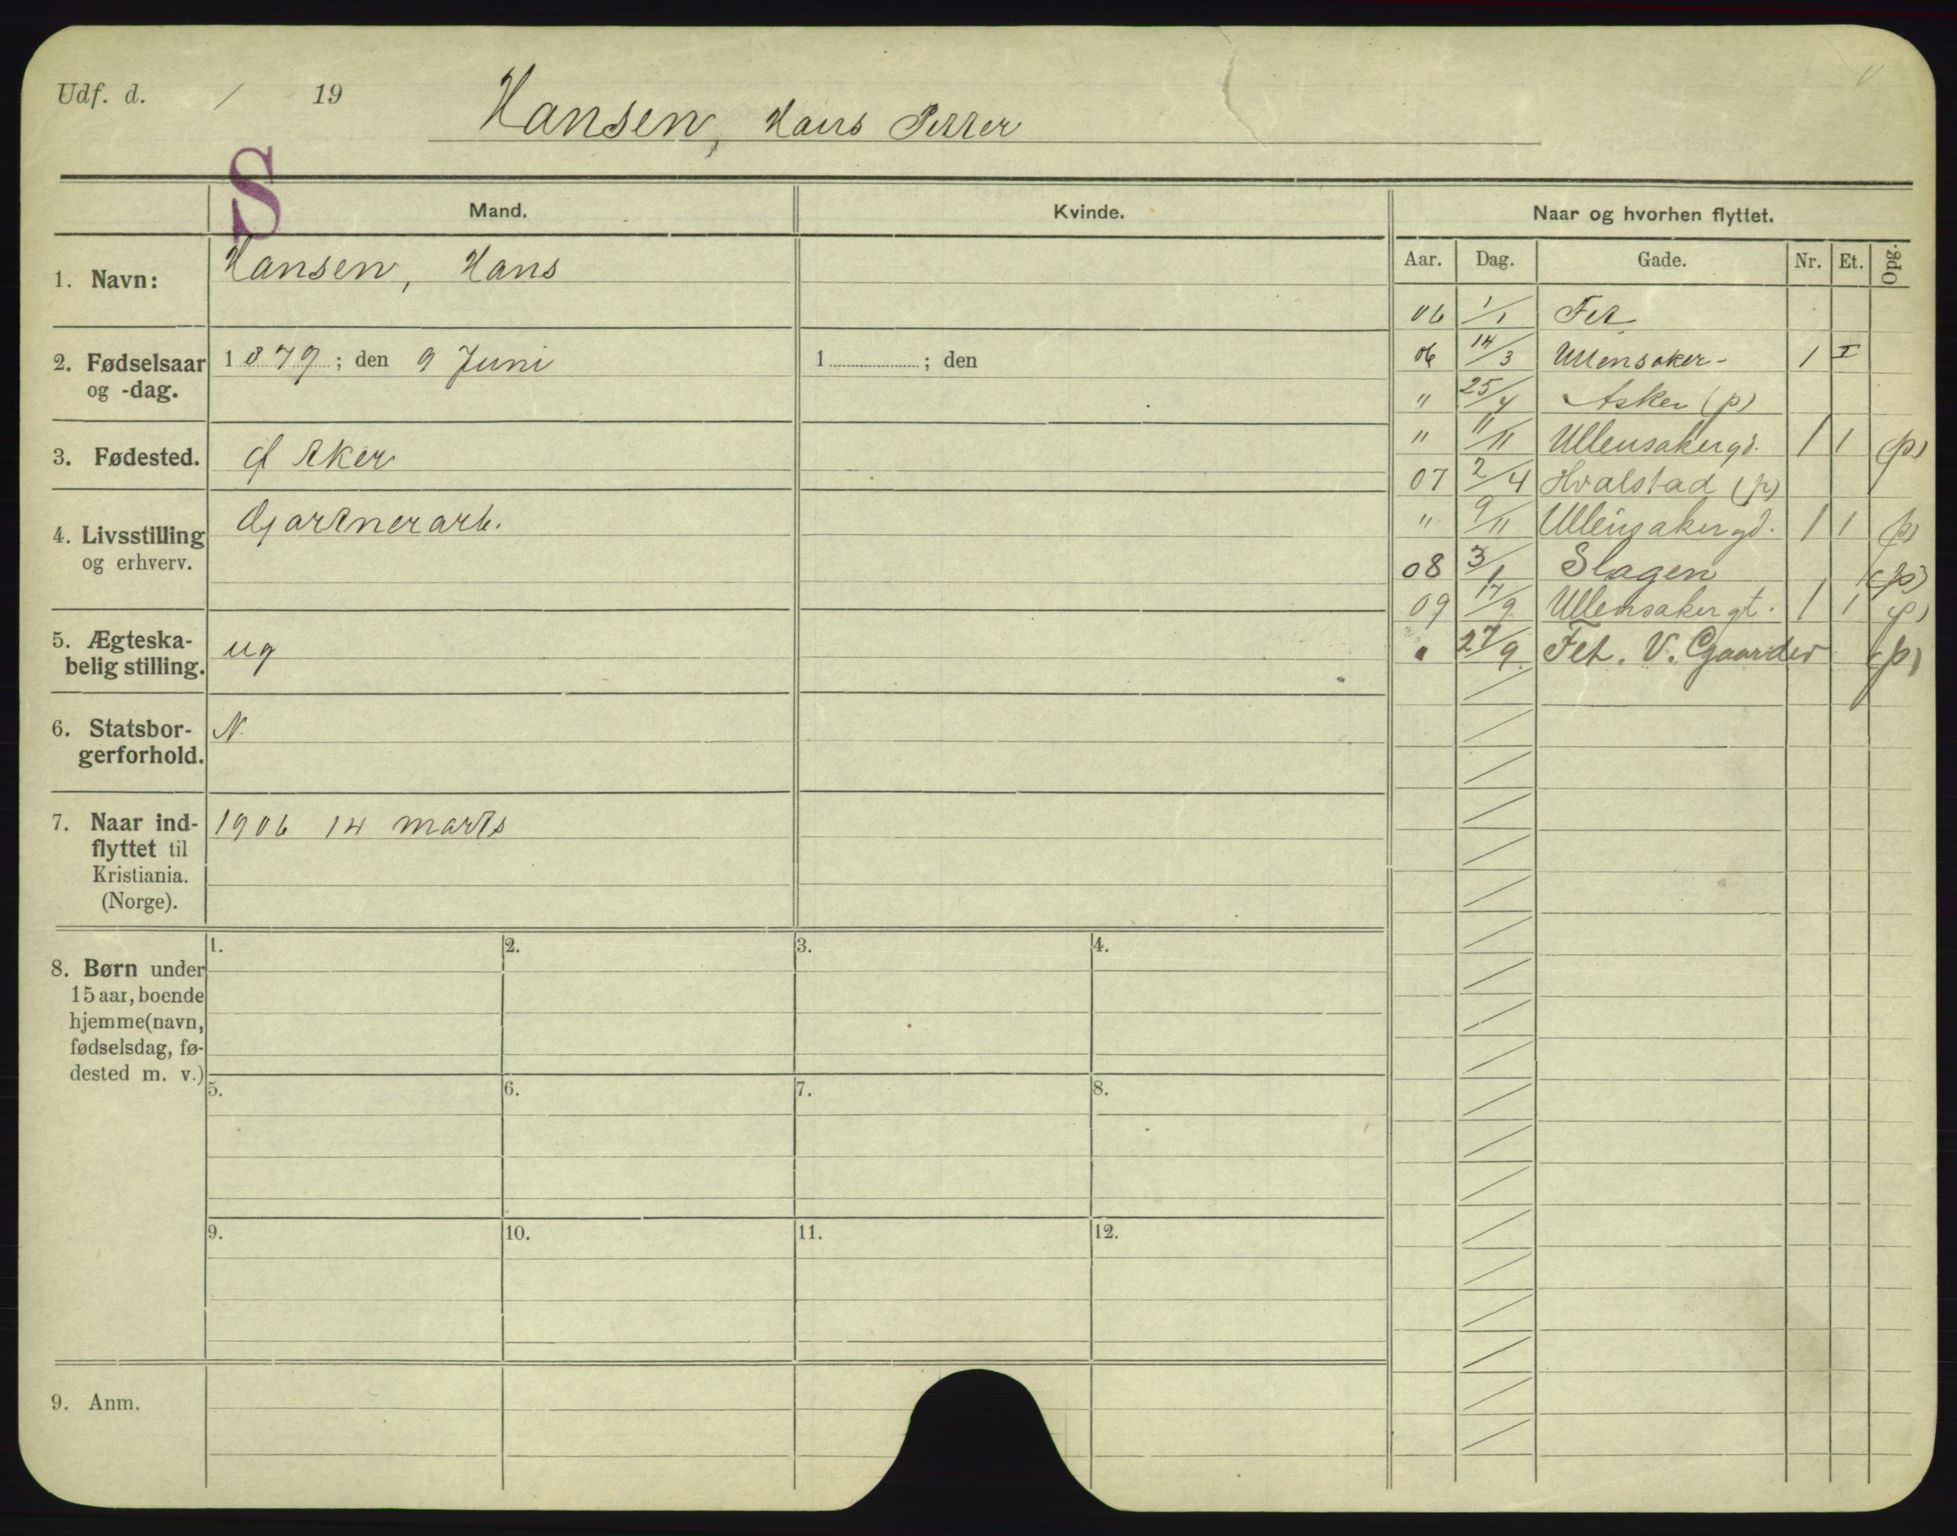 Udf. d. / 19
Hansen, Hans Petter
S
Mand. Kvinde. Naar og hvorhen flyttet.
Aar. Dag. Gade. Nr. Et. Opg.
1. Navn: Hansen, Hans
2. Fødselsaar og -dag. 1879; den 9 Juni
1 ; den
3. Fødested. Aker
4. Livsstilling og erhverv. Gartnerarb.
5. Ægteska-
belig stilling. ug
6. Statsbor-
gerforhold. N.
7. Naar ind-
flyttet til
Kristiania.
(Norge). 1906 14 marts
8. Børn under
15 aar, boende
hjemme (navn,
fødselsdag, fø-
dested m. v.)
1. 2. 3. 4.
5. 6. 7. 8.
9. 10. 11. 12.
9. Anm.
06 1/1 Fet
06 14/3 Ullensaker- 1 I
" 25/4 Asker (p)
" 11/11 Ullensakergd. 1 1 (p)
07 2/4 Hvalstad (p)
" 9/11 Ullensakergd. 1 1 (p)
08 3/1 Slagen (p)
09 17/9 Ullensakergt. 1 1 (p)
" 27/9 Fet. V. Gaarder (p)